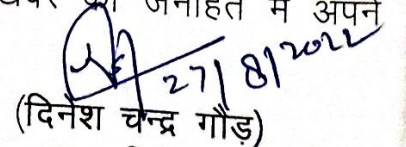 को जनहित में अपने
27/8/2022
(दिनेश चन्द्र गौड़)